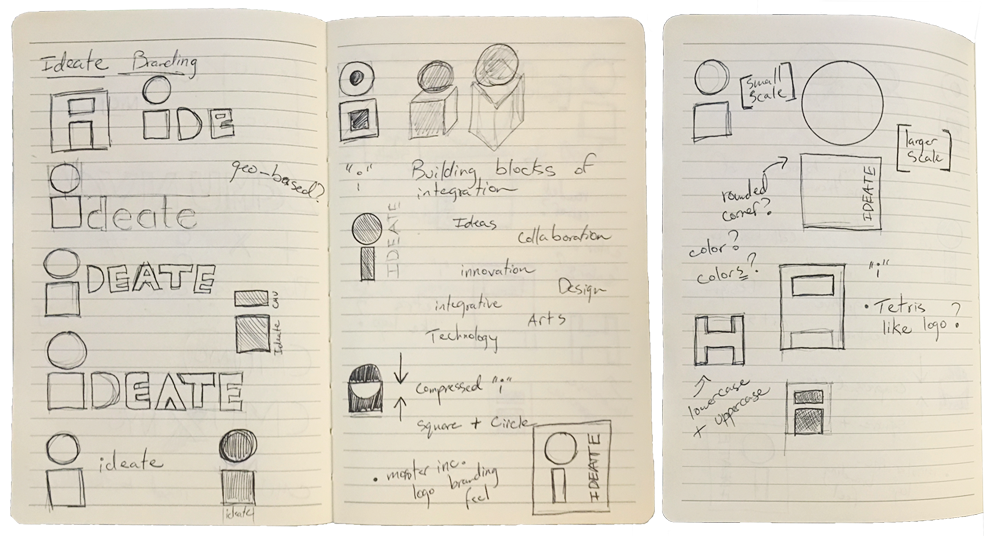 Ideate Branding
iDE
geo-based?
ideate
iDEATE
CMU
Ideate
iDEATE
ideate
ideate
"i"
Building blocks of
integration
IDEATE
Ideas
Collaboration
innovation
Design
integrative
Arts
Technology
Compressed "i"
Square + Circle
• moster inc.
logo branding
feel
IDEATE
[small
scale]
[larger
scale]
rounded
corner?
IDEATE
color?
colors?
"i"
• Tetris
like logo?
lowercase
+ uppercase